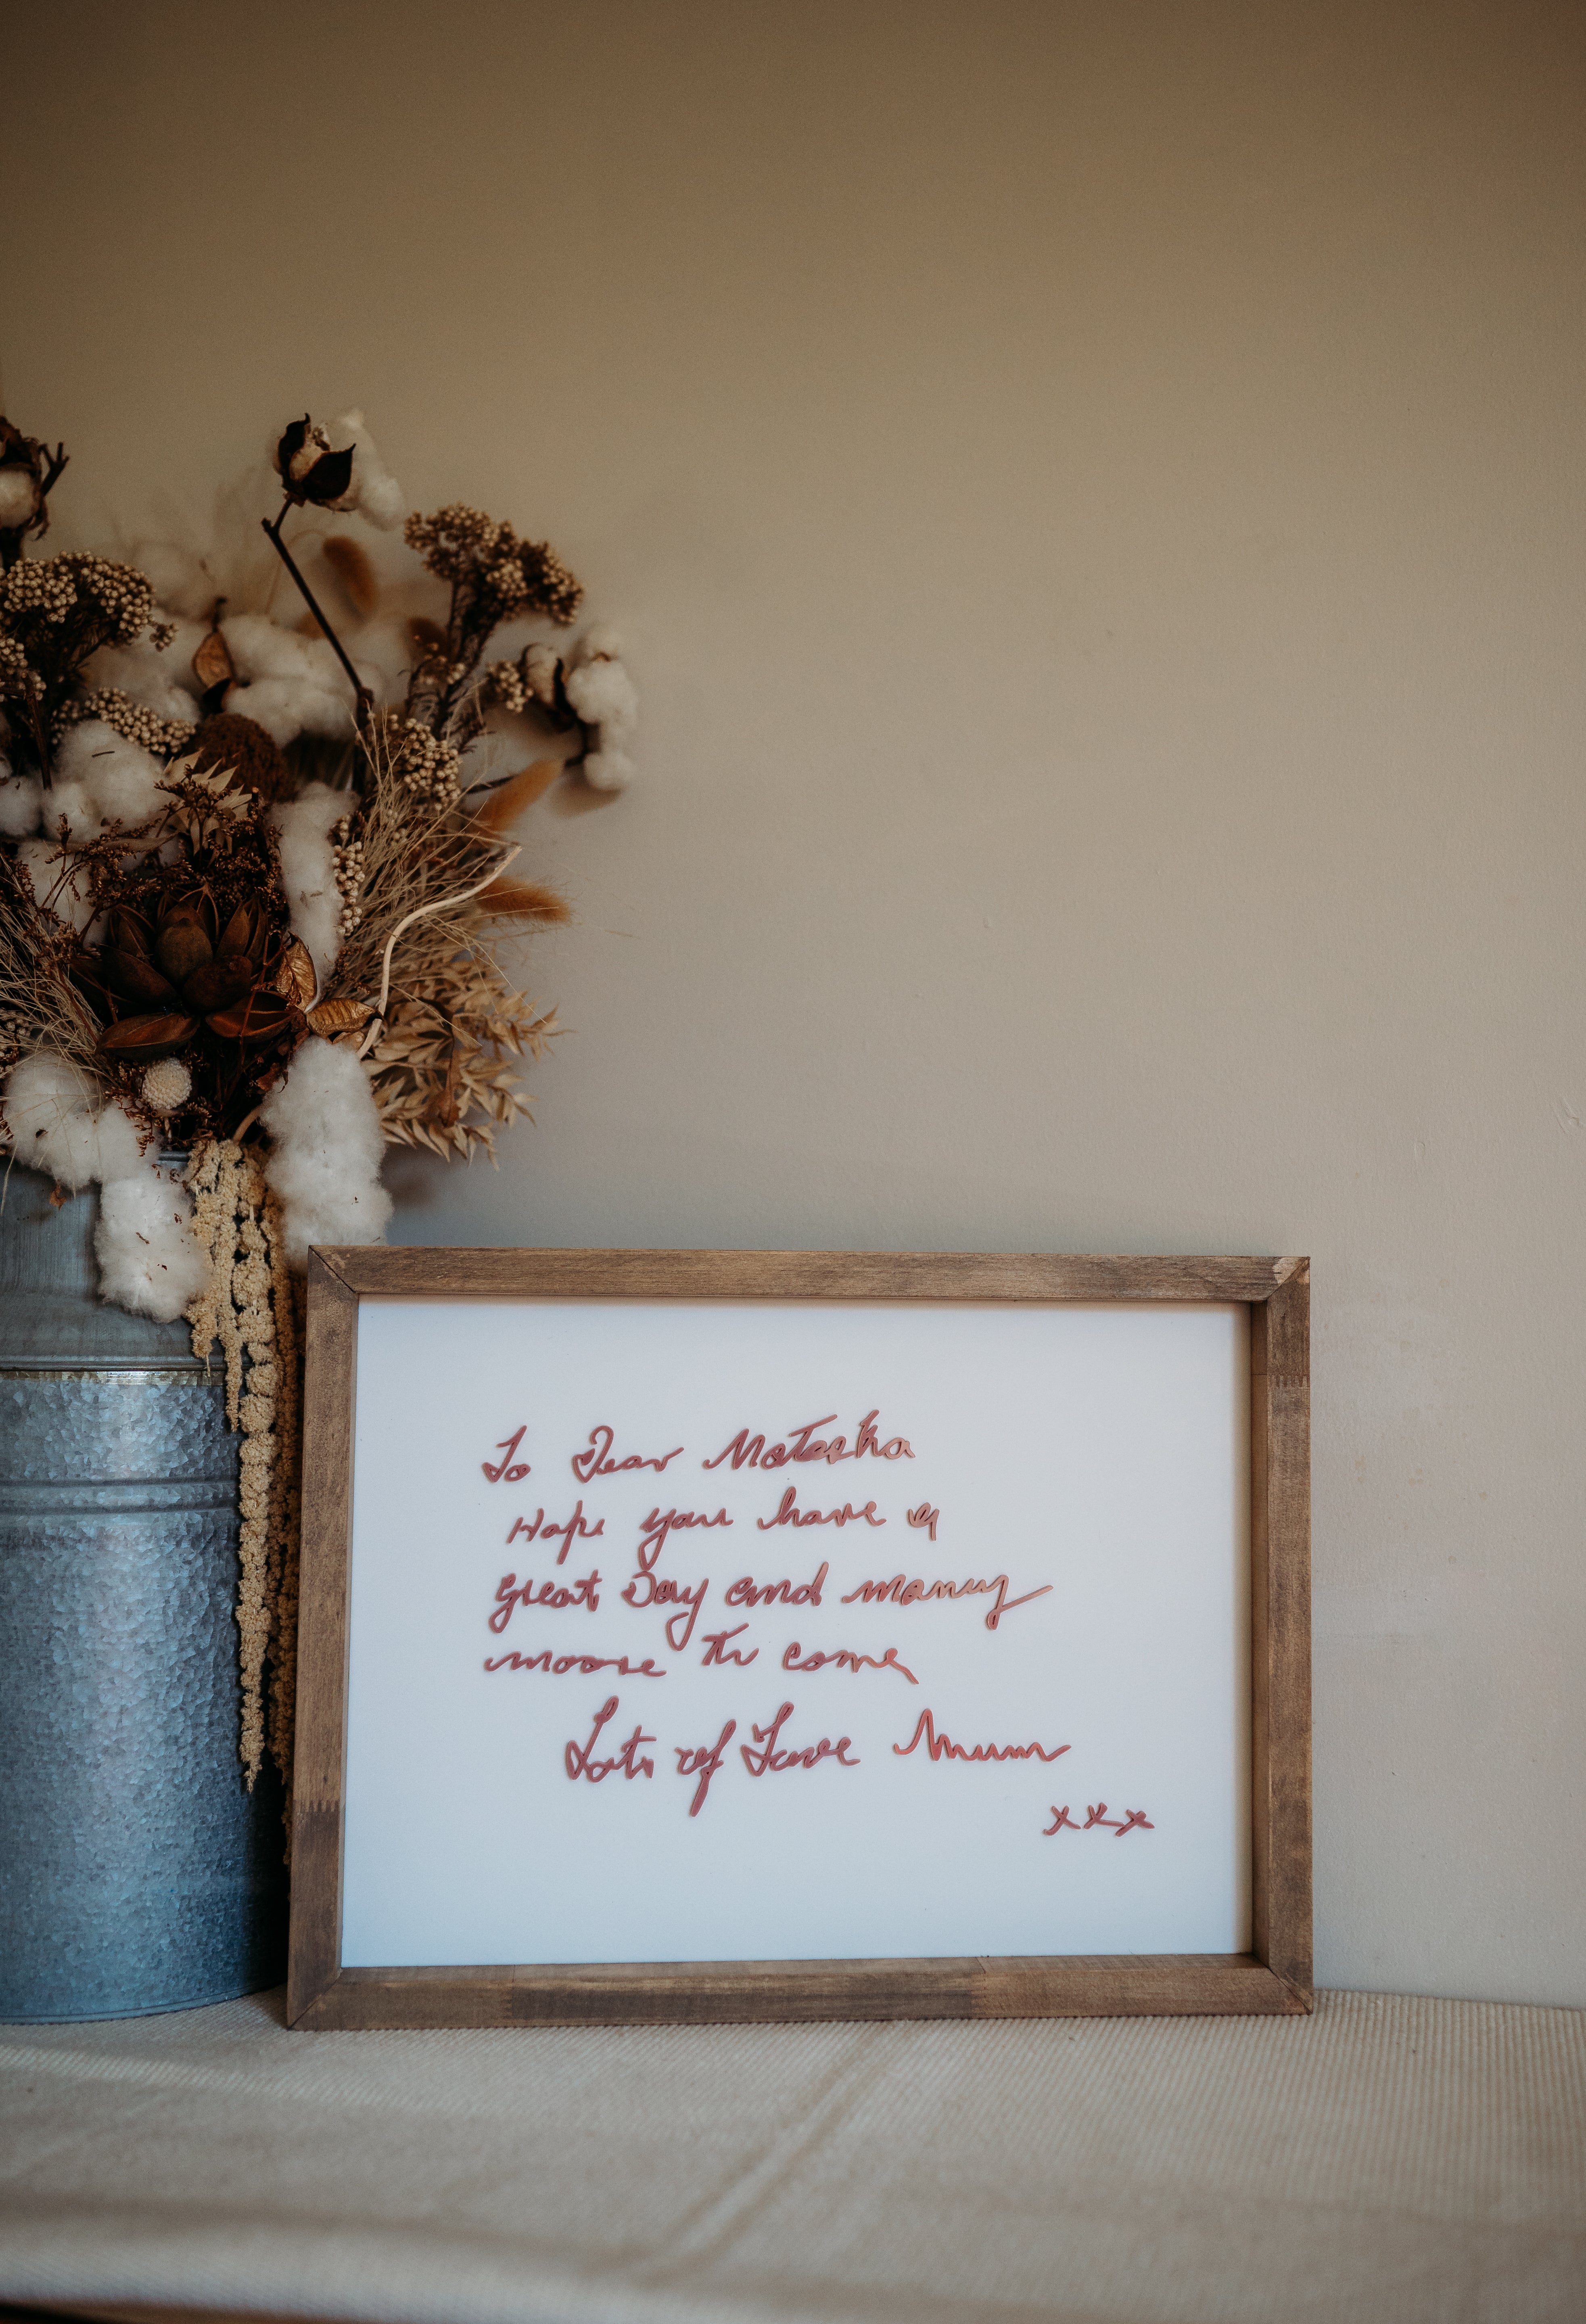 To Dear Natasha
Hope you have a
Great Day and many
moore to come
Lots of Love Mum
xxx